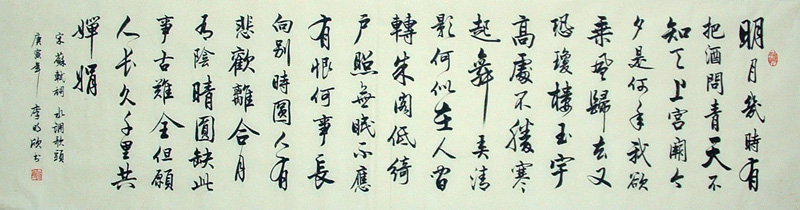 明月幾時有
把酒問青天不
知天上宮闕今
夕是何年我欲
乘風歸去又
恐瓊樓玉宇
高處不勝寒
起舞弄清
影何似在人間
轉朱閣低綺
戶照無眠不應
有恨何事長
向別時圓人有
悲歡離合月
有陰晴圓缺此
事古難全但願
人長久千里共
嬋娟
宋蘇軾詞 水調歌頭
庚寅年 李